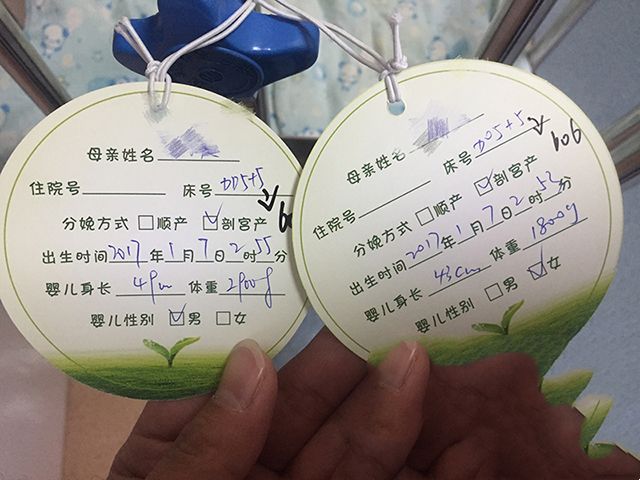 母亲姓名
住院号 床号 DD5+5
分娩方式 □顺产 ☑剖宫产
出生时间 2017年1月7日2时55分
婴儿身长 49cm 体重 2900g
婴儿性别 ☑男 □女
母亲姓名
住院号 床号 DD5+5 606
分娩方式 □顺产 ☑剖宫产
出生时间 2017年1月7日2时52分
婴儿身长 43cm 体重 1800g
婴儿性别 □男 ☑女